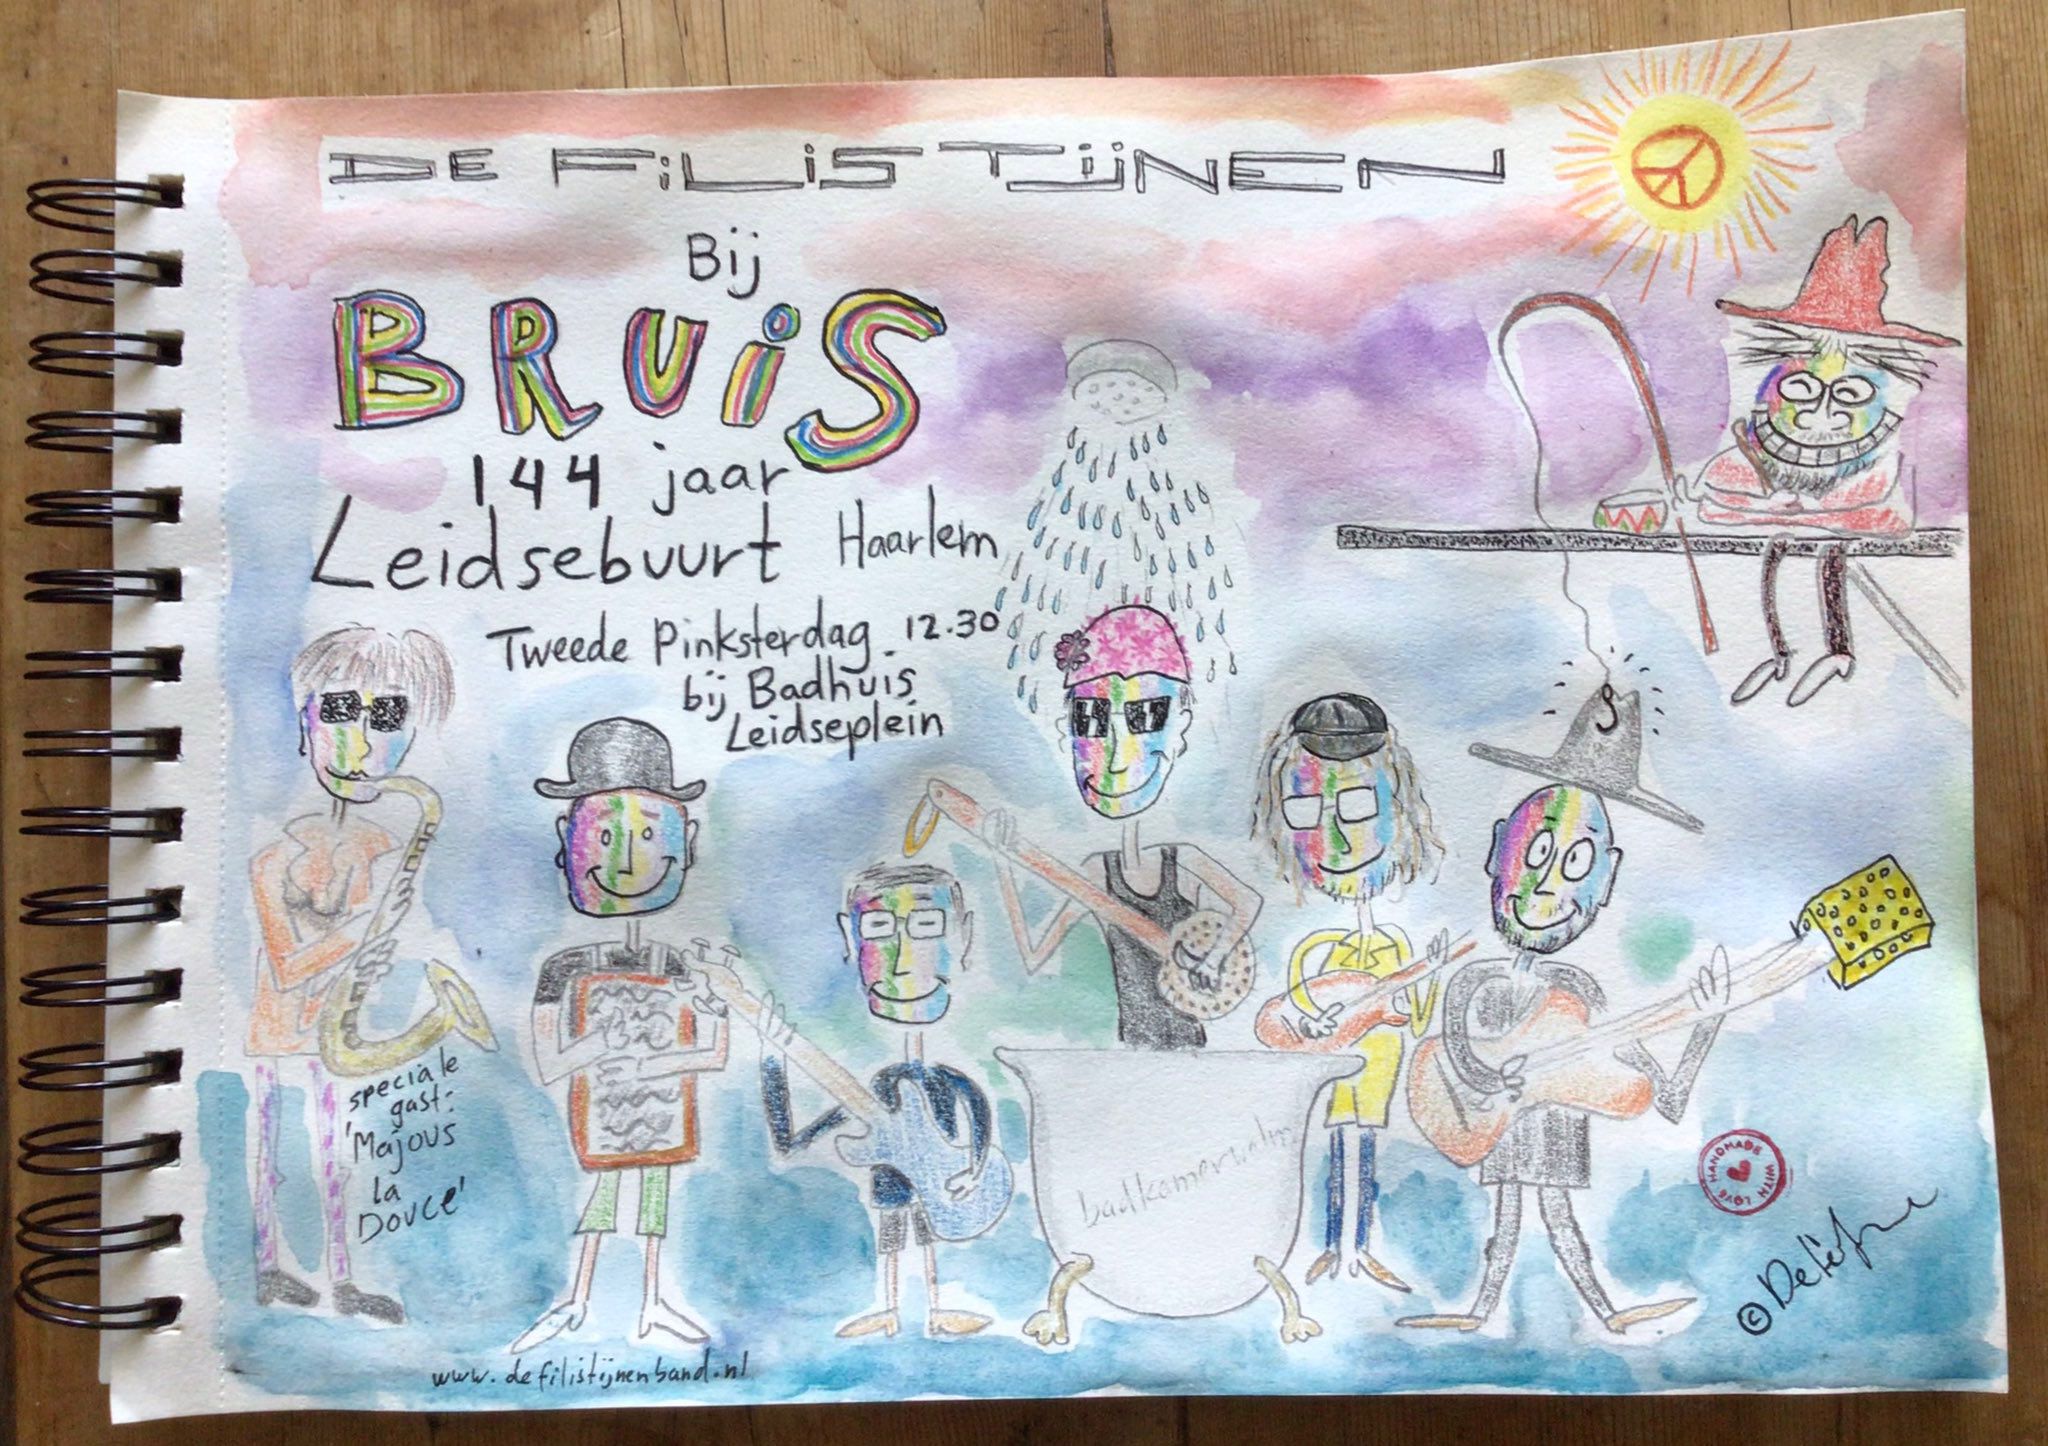 DE FiLiSTijNEN
Bij
BRUiS
144 jaar
Leidsebuurt Haarlem
Tweede Pinksterdag 12.30
bij Badhuis
Leidseplein
speciale
gast:
'Majous
la
Douce'
HANDMADE WITH LOVE
www.defilistijnenband.nl